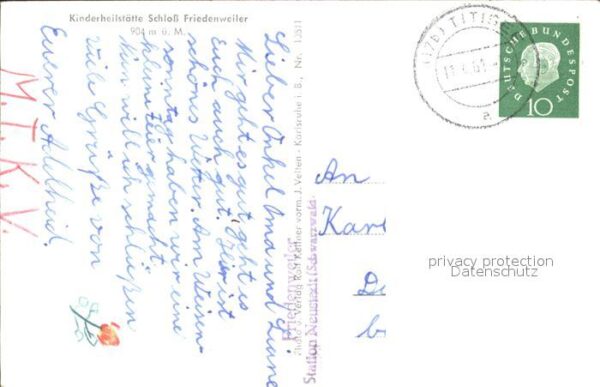 Kinderheilstätte Schloß Friedenweiler
904 m ü. M.
Lieber Onkel Oma und Liane
Mir geht es gut, geht es
Euch auch gut? Hier ist
schönes Wetter. Am
sonntag haben wir eine
kleine Feier gemacht.
Nun will ich schließen
viele Grüße von
Eurer Adelheid.
M. T. K. V.
Photo u. Verlag Rolf Kellner vorm. J. Velten - Karlsruhe i. B., Nr. 13511
Friedenweiler
Station Neustadt/Schwarzwald
(17b) TITIS
61
a
DEUTSCHE BUNDESPOST
10
An
Kar
privacy protection
Datenschutz